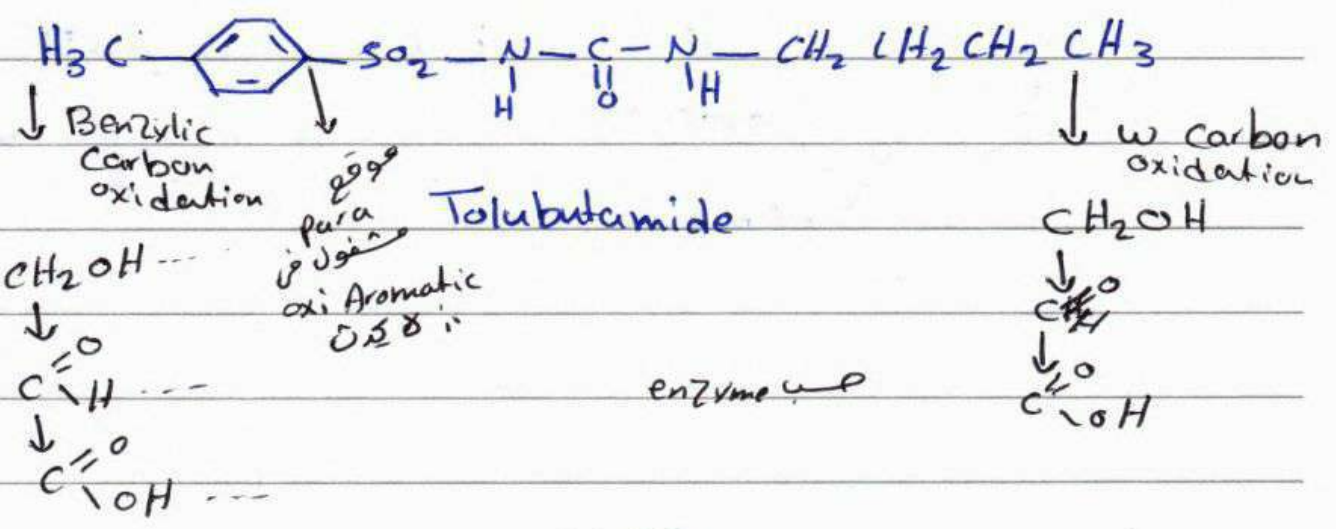 H₃C — SO₂ — N — C — N — CH₂ CH₂ CH₂ CH₃
H O H
Benzylic
Carbon
oxidation
موقع
para
مشغول في
oxi Aromatic
لا يمكن
Tolubutamide
w carbon
oxidation
CH₂OH ---
C=O
\H ---
C=O
\OH ---
enzyme حسب
CH₂OH
C=O
\H
C=O
\OH